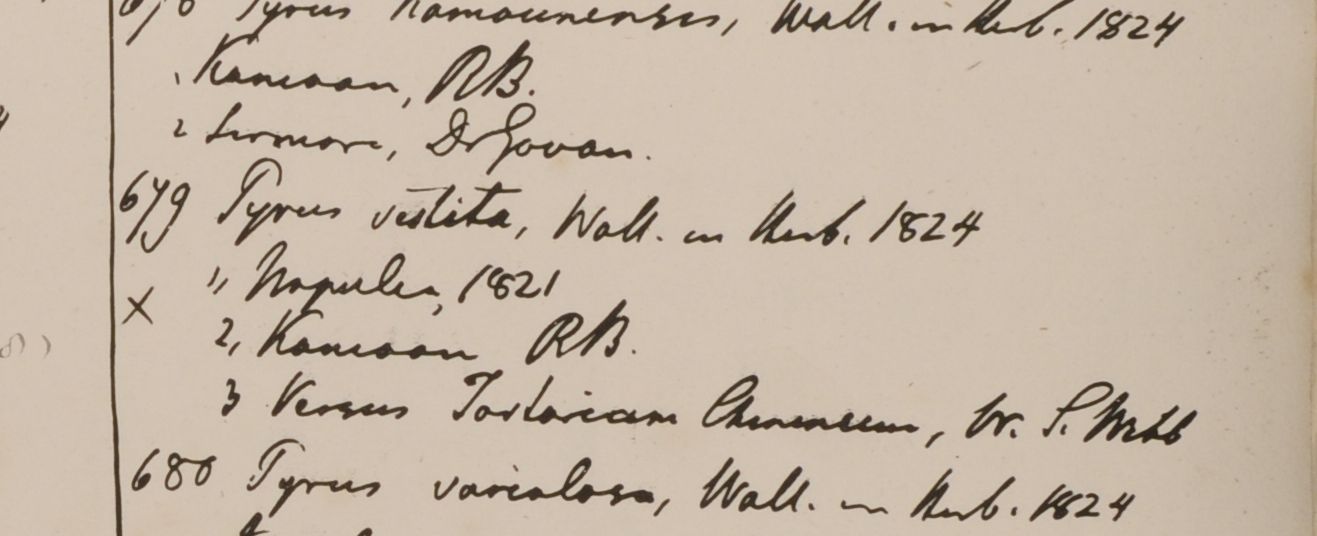 678 Pyrus Kamaunensis, Wall. in Herb. 1824
1 Kamaon, RB.
2 Sirmore, Dr Govan.
679 Pyrus vestita, Wall. in Herb. 1824
1, Napulia, 1821
X
2, Kamaon RB.
3 Versus Tartariam Chinensem, W. S. Webb
680 Pyrus variolosa, Wall. in Herb. 1824